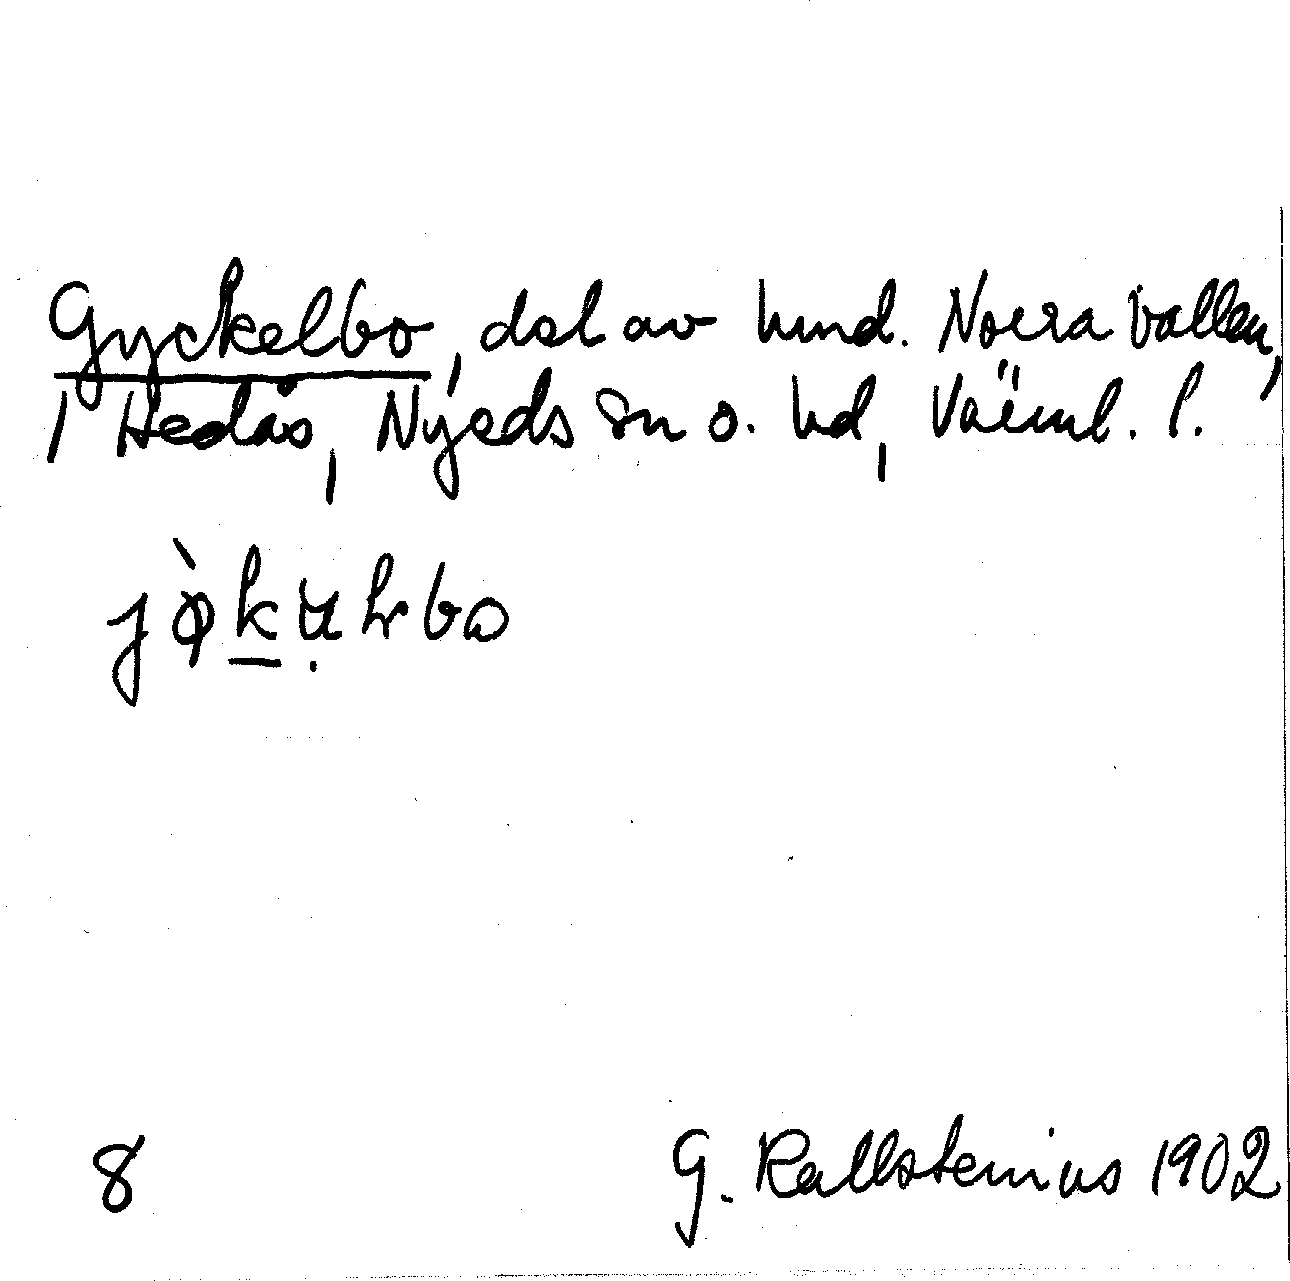 Gyckelbo, del av hmd. Norra vallen,
i Hedås, Nyeds sn o. hd, Värml. l.
8
G. Kallstenius 1902